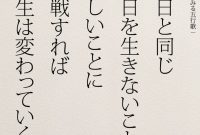 みる五行歌
日と同じ
日を生きないこと
しいことに
戦すれば
生は変わっていく